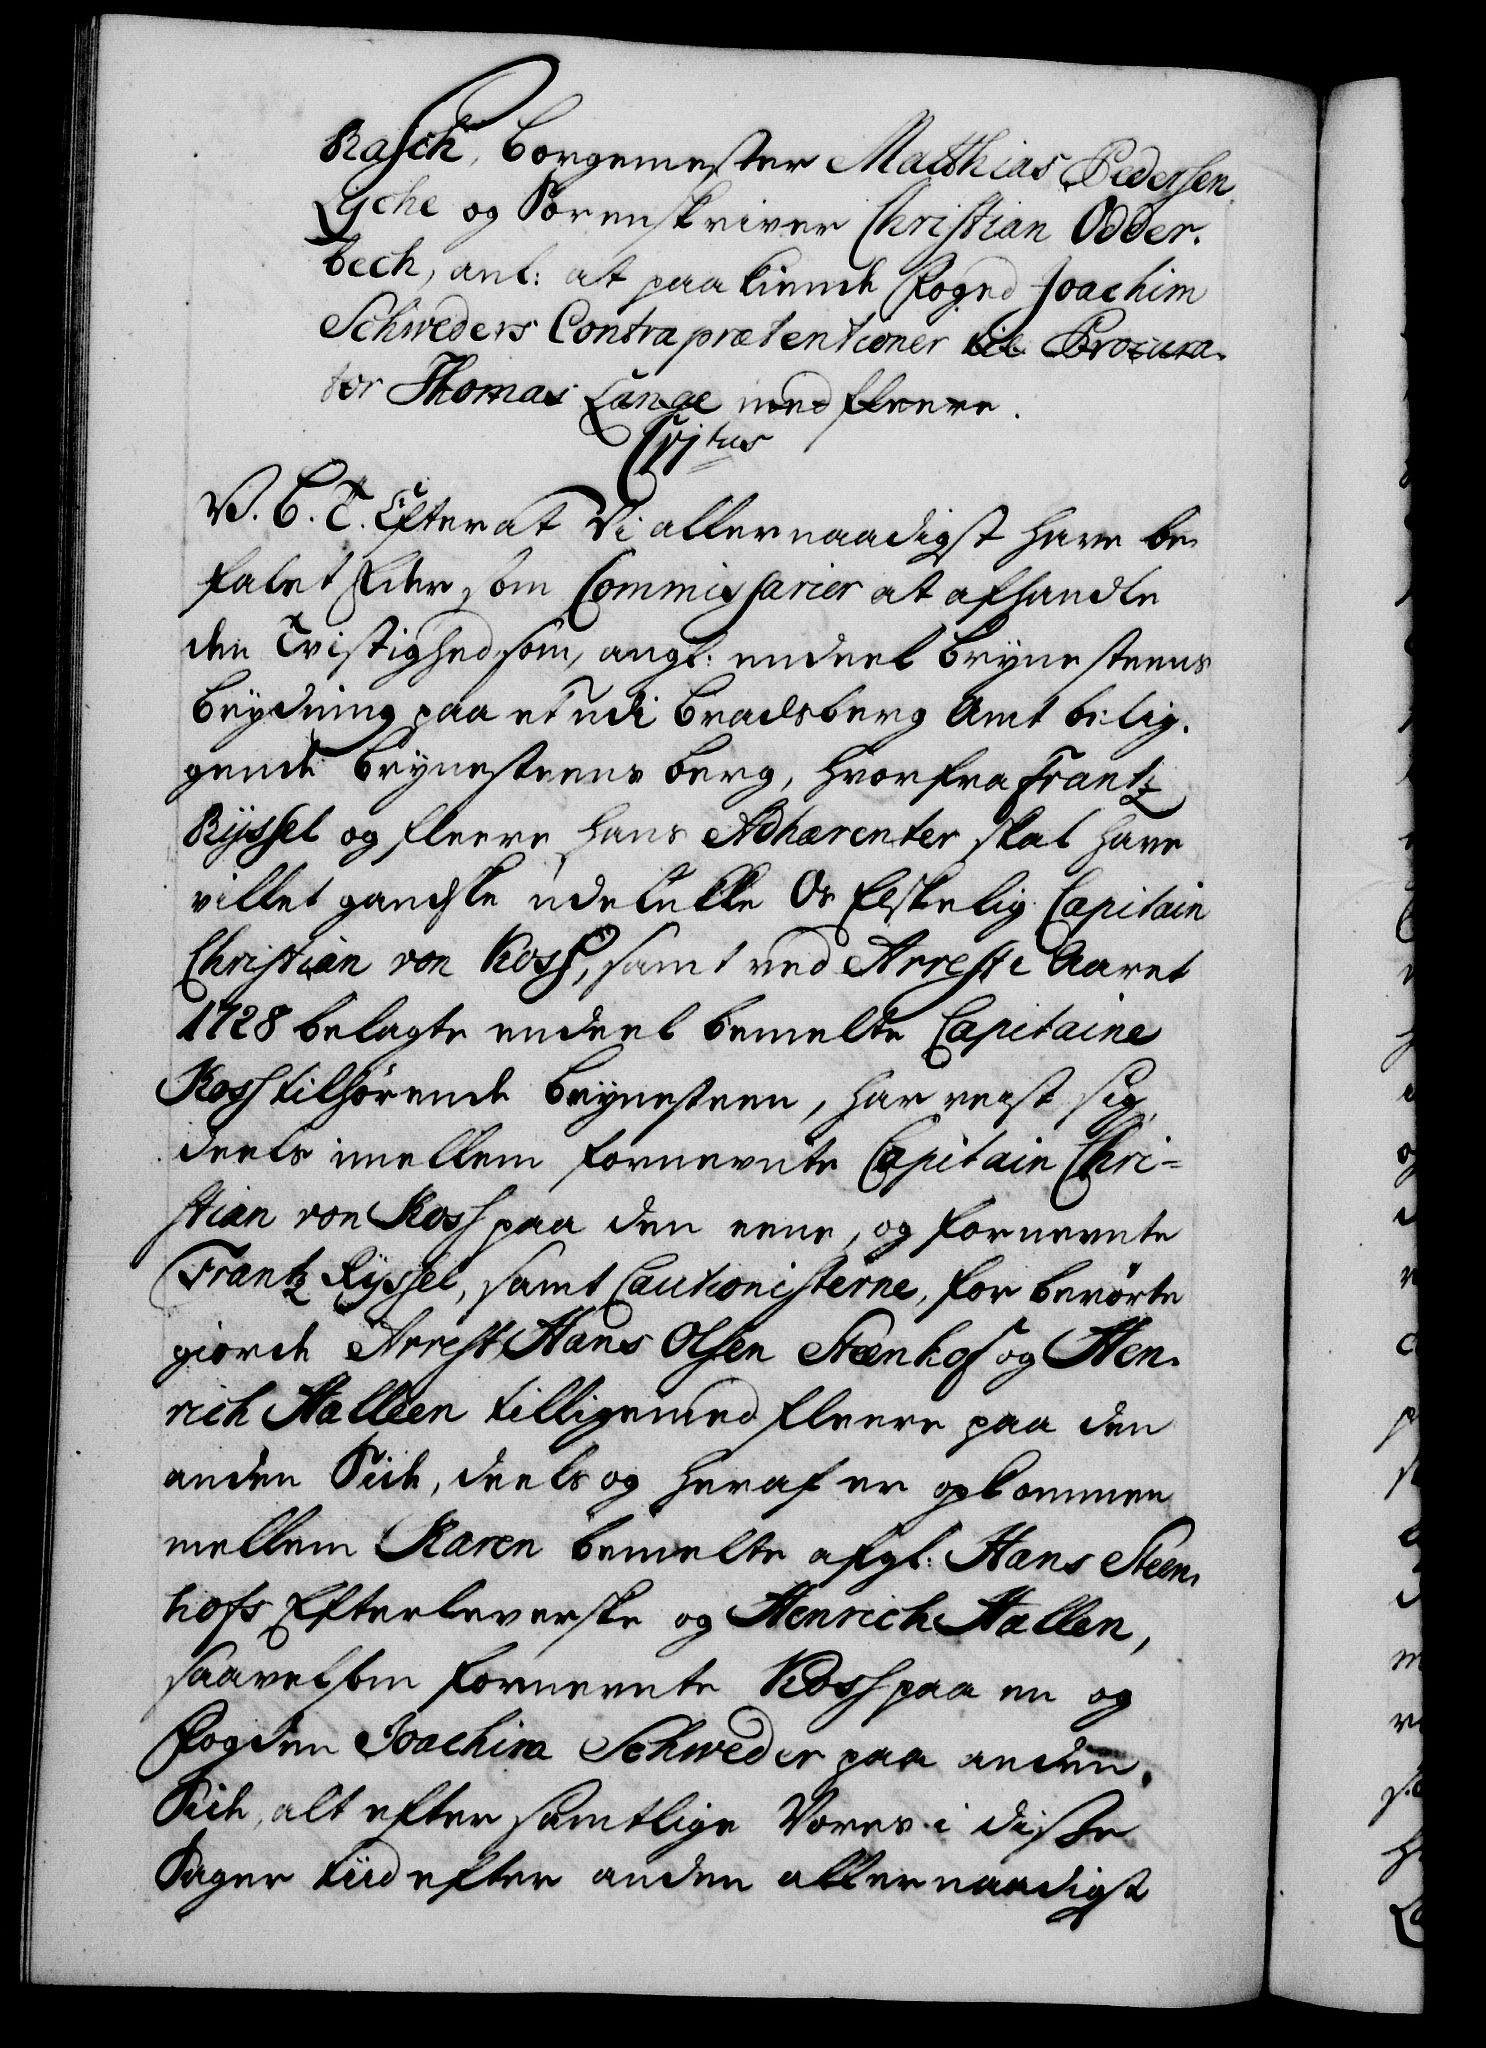 Rasch, Borgemester Matthias Pedersen
Lyche og Sorenskriver Christian Odder-
bech, anl: at paakiende Foged Joachim
Schweders Contraprætentioner til Procura-
tor Thomas Lange med fleere.
V. C. T. Efter at Vi allernaadigst have be-
falet Eder som Commissarier at afhandle
den Tvistighed som, angl: endeel Brynesteens
Brydning paa et udi Bradsberg Amt belig-
gende Brynesteens Berg, hvorfra Frantz
Ryssel og fleere hans Adhærenter skal have
villet gandske udelukke Os Elskelig Capitain
Christian von Koss, samt ved Arrest i Aaret
1728 belagte endeel bemelte Capitaine
Koss tilhørende Brynesteen, har reist sig
deels imellem fornevnte Capitain Chri-
stian von Koss paa den eene, og fornevnte
Frantz Ryssel, samt Cautionisterne, for berørte
giorde Arrest, Hans Olsen Steenhof og Hen-
rich Halleen tilligemed fleere paa den
anden Side, deels og heraf er opkommen
mellem Karen bemelte afgl: Hans Steen-
hofs Efterleverske og Henrich Hallen,
saavelsom fornevnte Koss paa en og
Fogden Joachim Schweder paa anden
Side, alt efter samtlige Vores i disse
Sager tiid efter anden allernaadigst